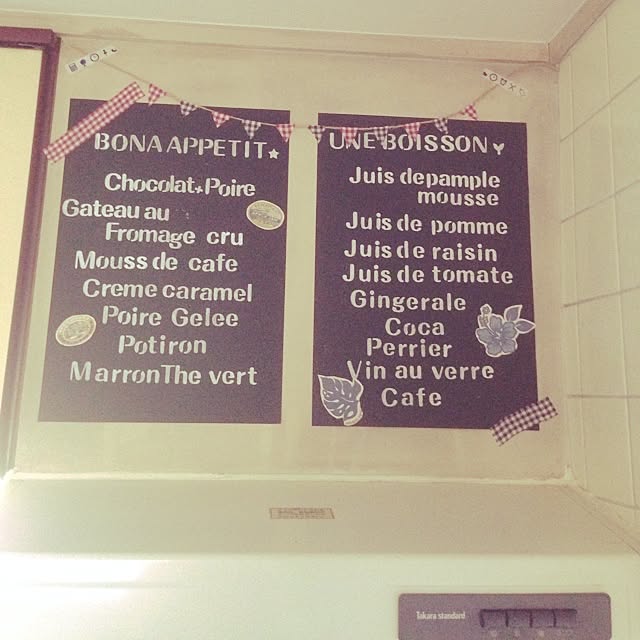 BONA APPETIT
Chocolat+Poire
Gateau au
Fromage cru
Mouss de cafe
Creme caramel
Poire Gelee
Potiron
MarronThe vert
UNE BOISSON
Juis depample
mousse
Juis de pomme
Juis de raisin
Juis de tomate
Gingerale
Coca
Perrier
Vin au verre
Cafe
Takara standard